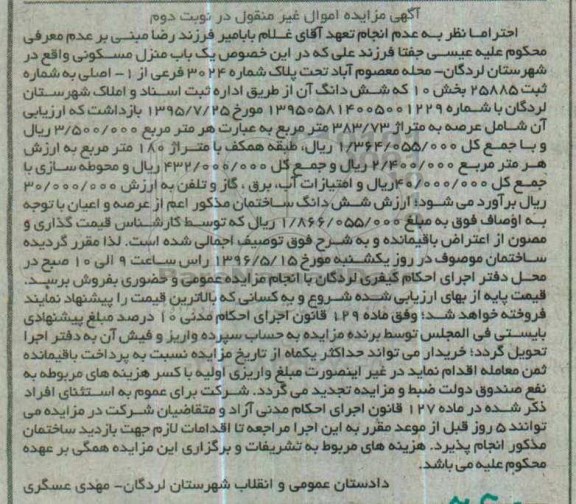 آگهی مزایده اموال غیر منقول در نوبت دوم
احتراما نظر به عدم انجام تعهد آقای غلام بابامیر فرزند رضا مبنی بر عدم معرفی
محکوم علیه عیسی جفتا فرزند علی که در این خصوص یک باب منزل مسکونی واقع در
شهرستان لردگان- محله معصوم آباد تحت پلاک شماره ۳۰۲۴ فرعی از ۱- اصلی به شماره
ثبت ۲۵۸۸۵ بخش ۱۰ که شش دانگ آن از طریق اداره ثبت اسناد و املاک شهرستان
لردگان با شماره ۱۳۹۵۰۵۸۱۴۰۰۵۰۰۱۲۲۹ مورخ ۱۳۹۵/۷/۲۵ بازداشت که ارزیابی
آن شامل عرصه به متراژ ۳۸۳/۷۳ متر مربع به عبارت هر متر مربع ۳/۵۰۰/۰۰۰ ریال
و با جمع کل ۱/۳۶۴/۰۵۵/۰۰۰ ریال، طبقه همکف با متراژ ۱۸۰ متر مربع به ارزش
هر متر مربع ۲/۴۰۰/۰۰۰ ریال و جمع کل ۴۳۲/۰۰۰/۰۰۰ ریال و محوطه سازی با
جمع کل ۴۰/۰۰۰/۰۰۰ ریال و امتیازات آب، برق ، گاز و تلفن به ارزش ۳۰/۰۰۰/۰۰۰
ریال برآورد می شود؛ ارزش شش دانگ ساختمان مذکور اعم از عرصه و اعیان با توجه
به اوصاف فوق به مبلغ ۱/۸۶۶/۰۵۵/۰۰۰ ریال که توسط کارشناس قیمت گذاری و
مصون از اعتراض باقیمانده و به شرح فوق توصیف اجمالی شده است. لذا مقرر گردیده
ساختمان موصوف در روز یکشنبه مورخ ۱۳۹۶/۵/۱۵ راس ساعت ۹ الی ۱۰ صبح در
محل دفتر اجرای احکام کیفری لردگان با انجام مزایده عمومی و حضوری بفروش برسد.
قیمت پایه از بهای ارزیابی شده شروع و به کسانی که بالاترین قیمت را پیشنهاد نمایند
فروخته خواهد شد؛ وفق ماده ۱۲۹ قانون اجرای احکام مدنی ۱۰ درصد مبلغ پیشنهادی
بایستی فی المجلس توسط برنده مزایده به حساب سپرده واریز و فیش آن به دفتر اجرا
تحویل گردد؛ خریدار می تواند حداکثر یکماه از تاریخ مزایده نسبت به پرداخت باقیمانده
ثمن معامله اقدام نماید در غیر اینصورت مبلغ واریزی اولیه با کسر هزینه های مربوطه به
نفع صندوق دولت ضبط و مزایده تجدید می گردد. شرکت برای عموم به استثنای افراد
ذکر شده در ماده ۱۲۷ قانون اجرای احکام مدنی آزاد و متقاضیان شرکت در مزایده می
توانند ۵ روز قبل از موعد مقرر به این اجرا مراجعه تا اقدامات لازم جهت بازدید ساختمان
مذکور انجام پذیرد. هزینه های مربوط به تشریفات و برگزاری این مزایده همگی بر عهده
محکوم علیه می باشد.
دادستان عمومی و انقلاب شهرستان لردگان- مهدی عسگری